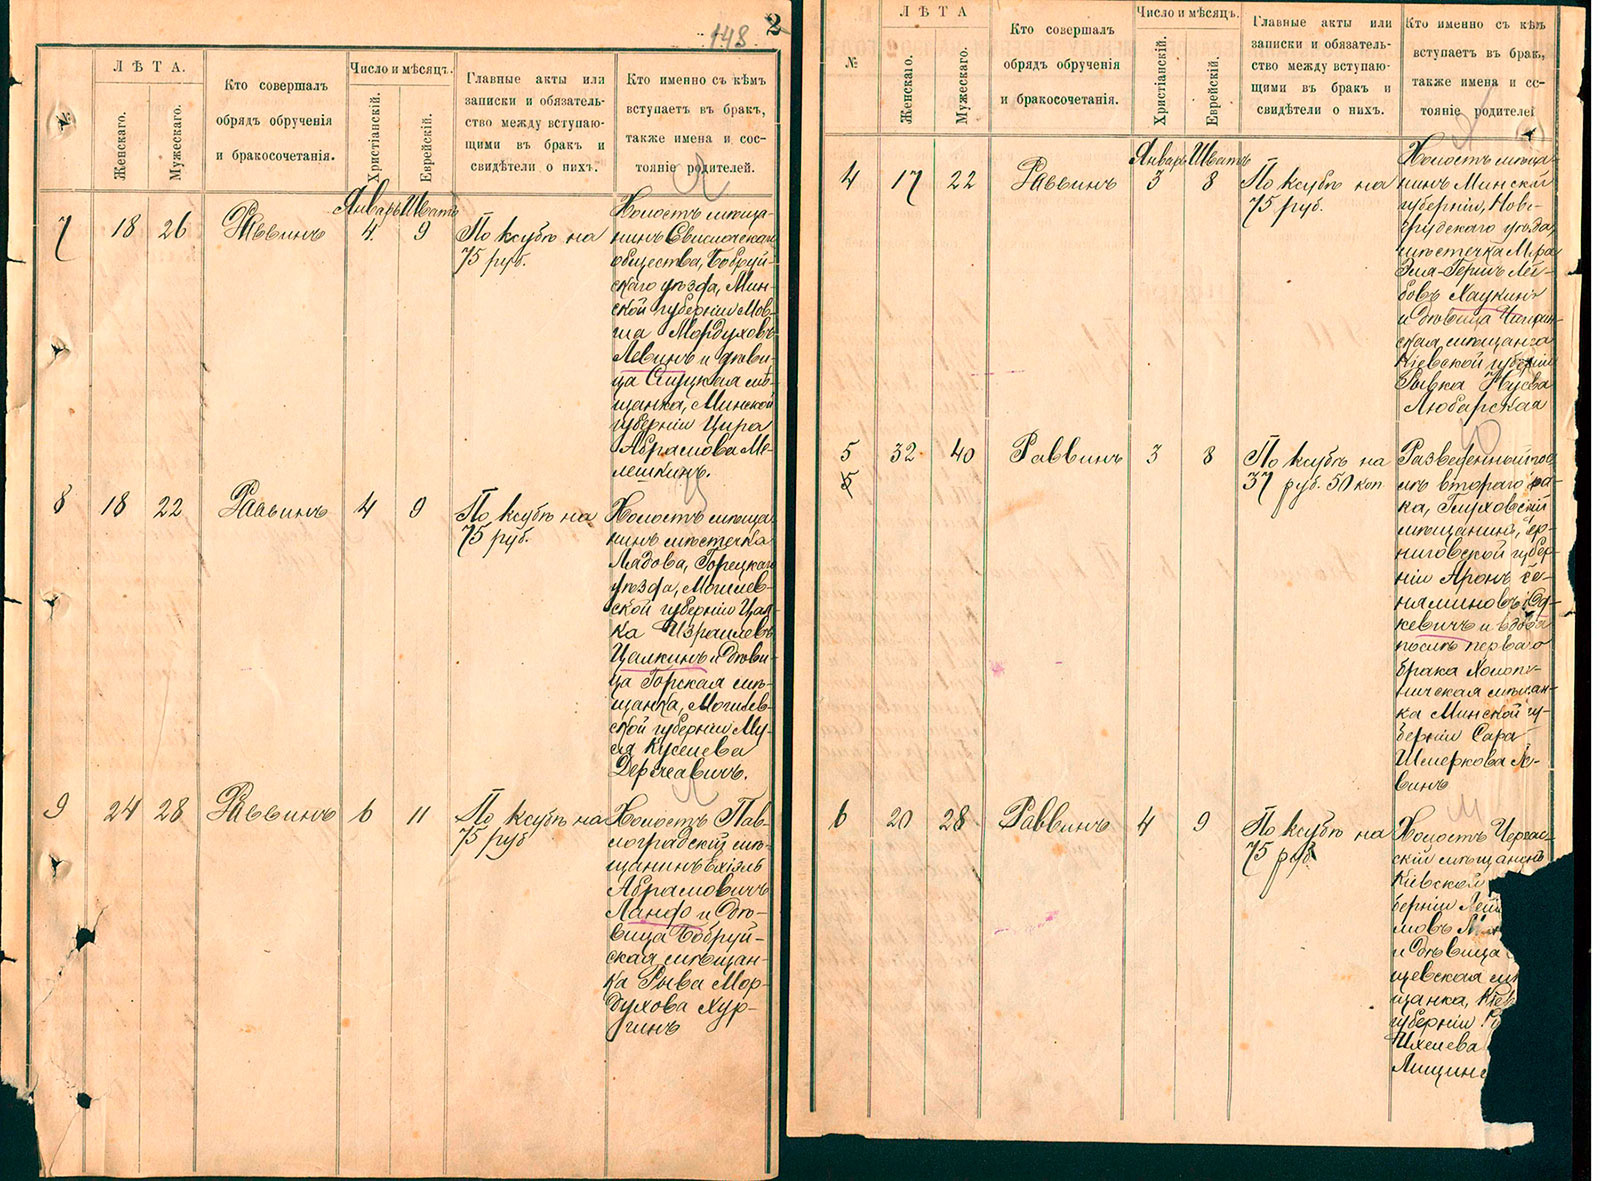 148.
2
№
ЛѢТА.
Женскаго.
Мужескаго.
Кто совершалъ
обрядъ обрученія
и бракосочетанія.
Число и мѣсяцъ.
Христіанскій.
Еврейскій.
Главные акты или
записки и обязатель-
ство между вступаю-
щими въ бракъ и
свидѣтели о нихъ.
Кто именно съ кѣмъ
вступаетъ въ бракъ,
также имена и сос-
тояніе родителей.
Январь Шватъ
7 18 26 Раввинъ 4. 9
По ксубѣ на
75 руб.
Холостъ мѣща-
нинъ Свислочскаго
общества, Бобруй-
скаго уѣзда, Мин-
ской губерніи Мов-
ша Мордуховъ
Левинъ и дѣви-
ца Слуцкая мѣ-
щанка, Минской
губерніи Цира
Абрамова Ме-
лешкинъ.
8 18 22 Раввинъ 4 9
По ксубѣ на
75 руб.
Холостъ мѣща-
нинъ мѣстечка
Лядова, Горецкаго
уѣзда, Могилев-
ской губерніи Цал-
ка Израилевъ
Цалкинъ и дѣви-
ца Горская мѣ-
щанка, Могилев-
ской губерніи Му-
ля Куселева
Держеавичъ.
9 24 28 Раввинъ 6 11
По ксубѣ на
75 руб
Холостъ Пав-
лоградскій мѣ-
щанинъ Ехіэль
Абрамовичъ
Ланфо и дѣ-
вица Бобруй-
ская мѣщан-
ка Рыва Мор-
духова Хур-
гинъ
№
ЛѢТА
Женскаго.
Мужескаго.
Кто совершалъ
обрядъ обрученія
и бракосочетанія.
Число и мѣсяцъ.
Христіанскій.
Еврейскій.
Главные акты или
записки и обязатель-
ство между вступаю-
щими въ бракъ и
свидѣтели о нихъ.
Кто именно съ кѣмъ
вступаетъ въ бракъ,
также имена и сос-
тояніе родителей
Январь Шватъ
4 17 22 Раввинъ 3 8
По ксубѣ на
75 руб.
Холостъ мѣща-
нинъ Минской
губерніи, Ново-
грудскаго уѣзда,
мѣстечка Мира
Эля-Гершъ Лей-
бовъ Хаукинъ
и дѣвица
ская мѣщанка
Кіевской губерніи
Рывка Нусева
Любарская
5 32 40 Раввинъ 3 8
5
По ксубѣ на
37 руб. 50 коп
Разведенный пос
лѣ второго бра-
ка, Глуховскій
мѣщанинъ, Чер-
ниговской губер-
ніи Аронъ Бе-
няминовъ Юд-
кевичъ и вдова
послѣ перваго
брака Холопе-
ничская мѣщан-
ка Минской гу-
берніи Сара
Шмеркова Ле-
винъ
6 20 28 Раввинъ 4 9
По ксубѣ на
75 руб.
Холостъ Черкас-
скій мѣщанинъ
Кіевской
берніи Лей
мовъ
и дѣвица
щевская мѣ
щанка, Кіев
губерніи
Ихелева
Лищинс